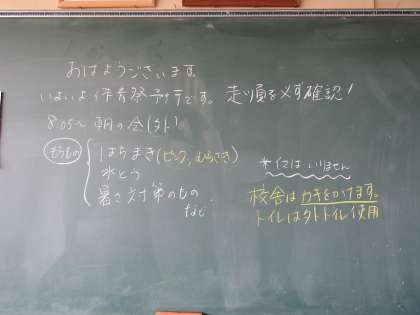 おはようございます。
いよいよ体育祭予行です。走り順を必ず確認!
8:05〜 朝の会(外)
もちもの
はちまき(ピンク, むらさき)
水とう
暑さ対策のもの
など
*イスはいりません
校舎はカギをかけます。
トイレは外トイレ使用